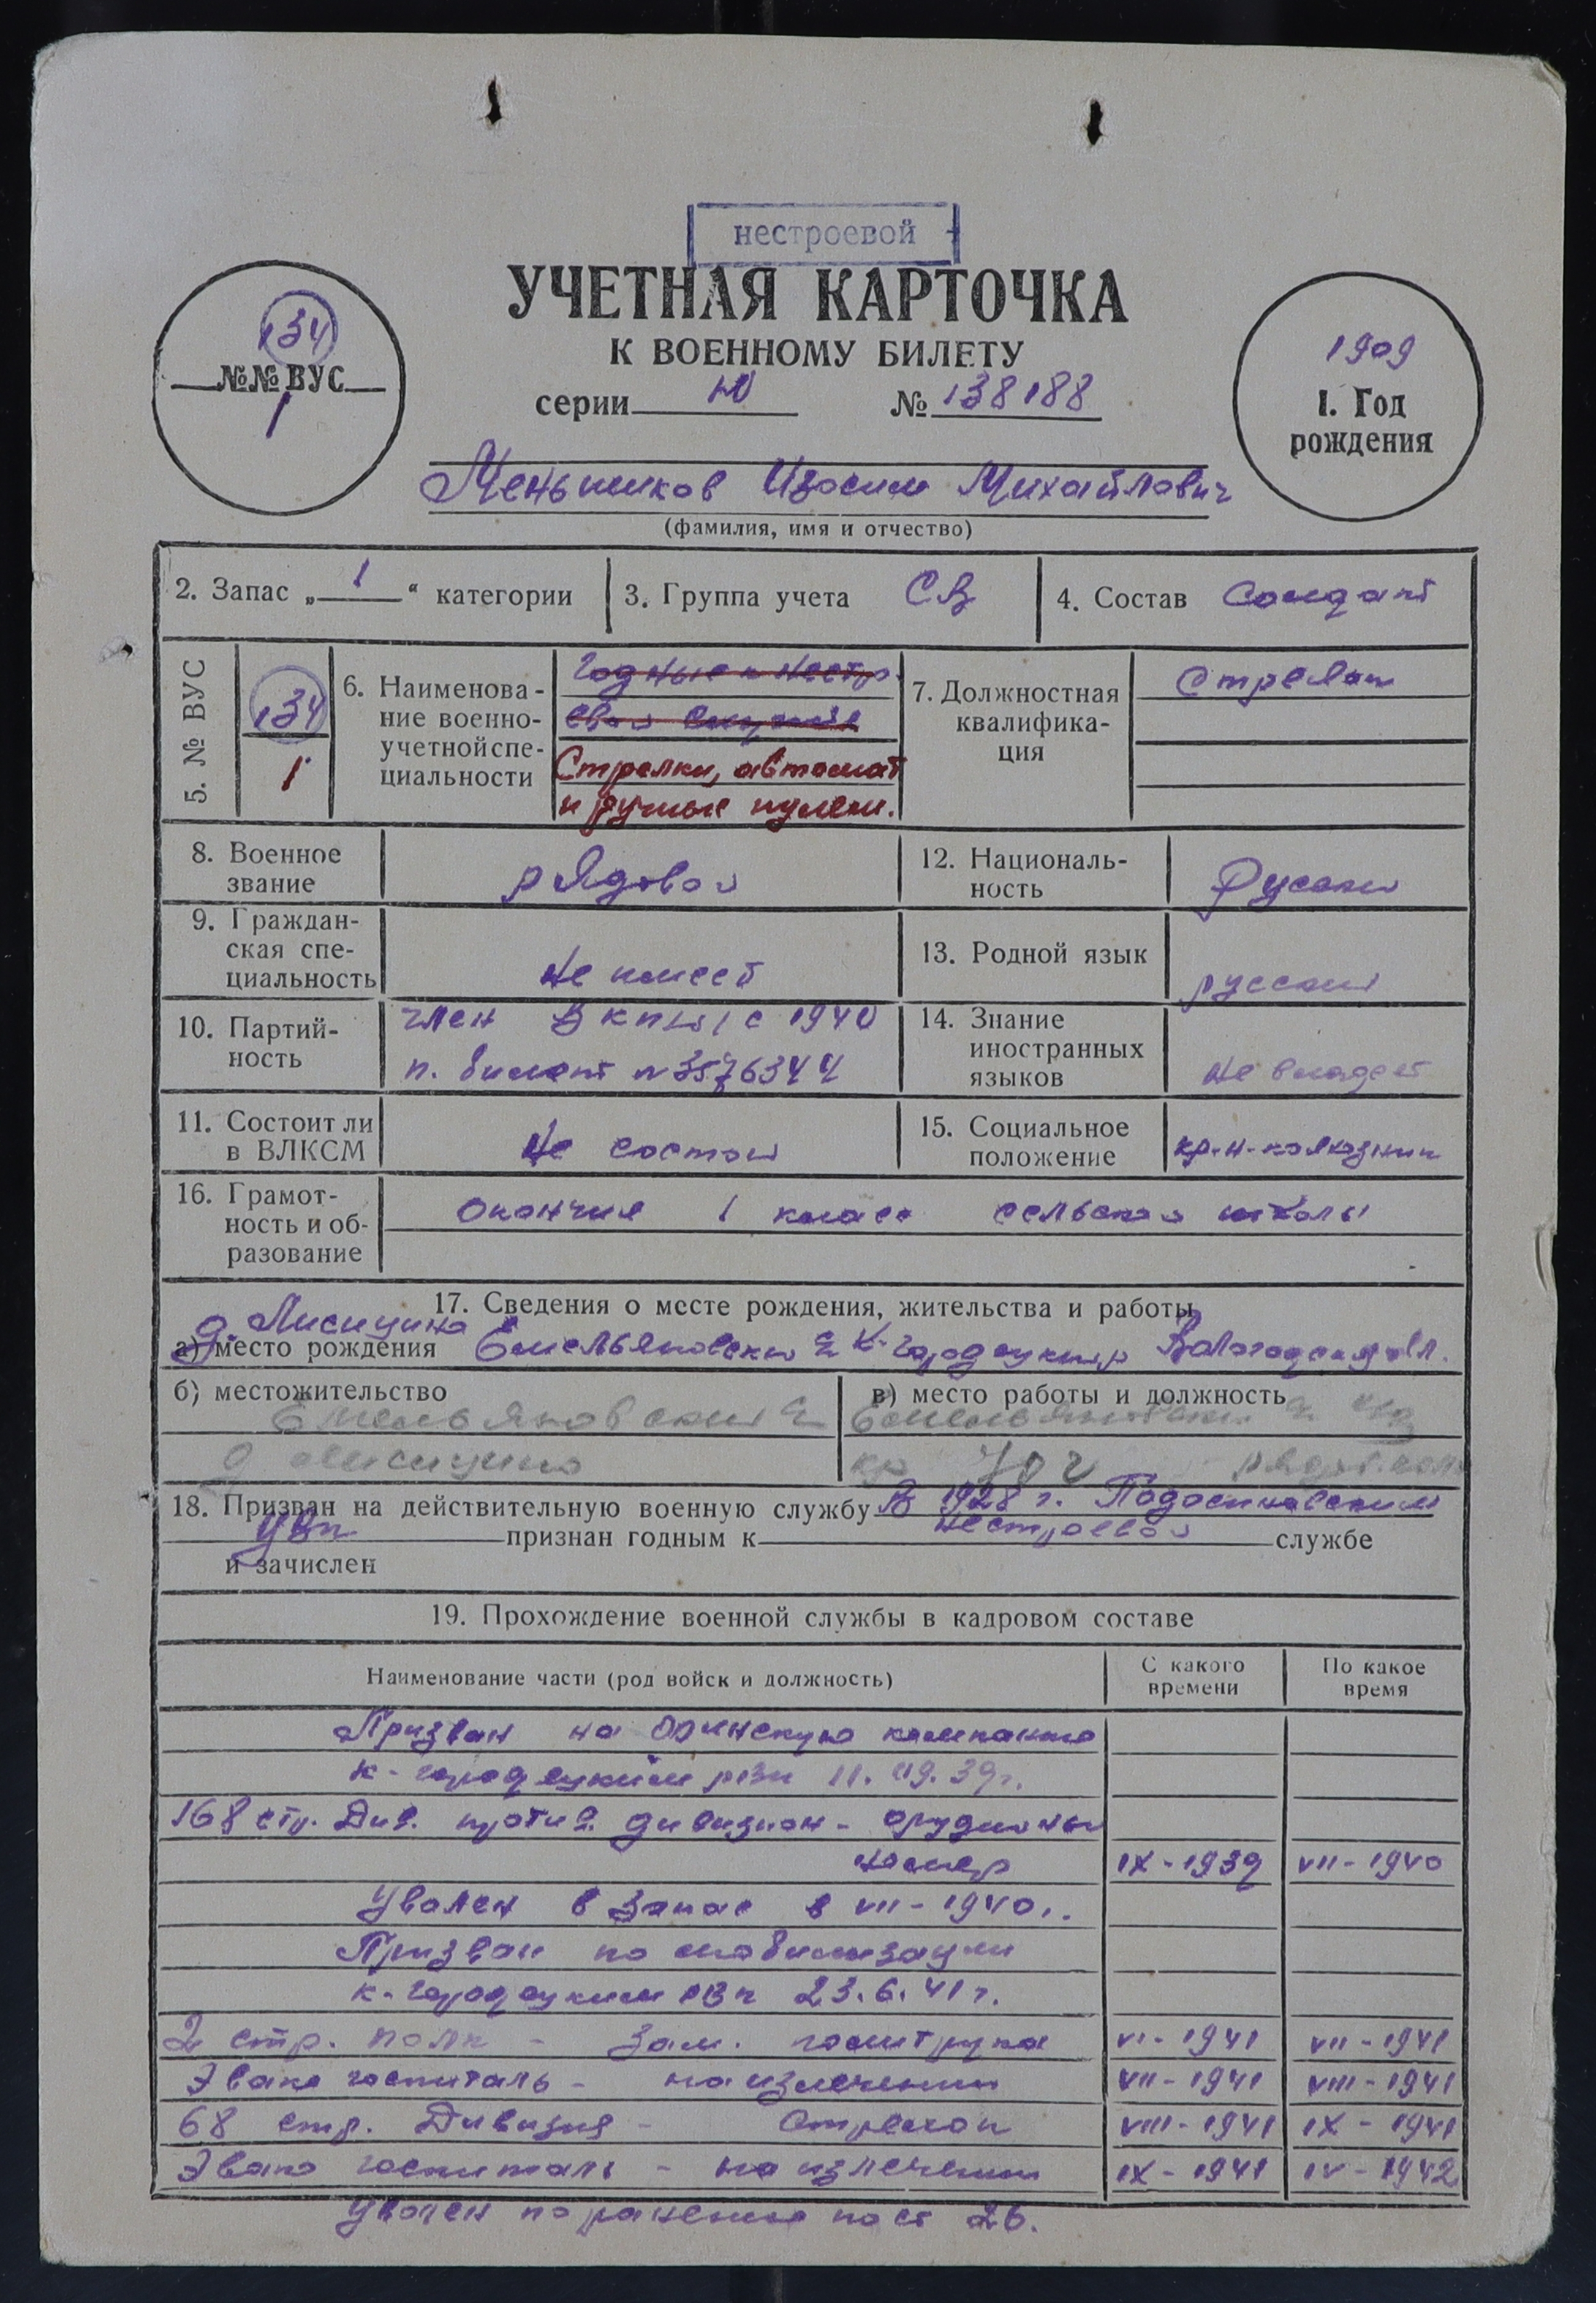 нестроевой
УЧЕТНАЯ КАРТОЧКА
К ВОЕННОМУ БИЛЕТУ
серии Ю № 138188
134
№№ ВУС
1
1909
1. Год
рождения
Меньшиков Изосим Михайлович
(фамилия, имя и отчество)
2. Запас „ 1 “ категории
3. Группа учета СВ
4. Состав Солдат
5. № ВУС
134
1
6. Наименова-
ние военно-
учетной спе-
циальности
Годные к нестр.
евой службе
Стрелки, автомат
и ручные пулем.
7. Должностная
квалифика-
ция
Стрелок
8. Военное
звание
рядовой
12. Националь-
ность
Русский
9. Граждан-
ская спе-
циальность
Не имеет
13. Родной язык
русский
10. Партий-
ность
член ВКП(б) с 1940
п. билет № 3576344
14. Знание
иностранных
языков
Не владеет
11. Состоит ли
в ВЛКСМ
Не состоит
15. Социальное
положение
кр-н-колхозник
16. Грамот-
ность и об-
разование
Окончил 1 класс сельской школы
17. Сведения о месте рождения, жительства и работы
д. Лисицино
а) место рождения Емельяновский К-Городецкий р Вологодская обл.
б) местожительство
Емельяновский
д Лисицино
в) место работы и должность
Емельяновский
18. Призван на действительную военную службу В 1928 г. Подосиновским
УВК признан годным к нестроевой службе
и зачислен
19. Прохождение военной службы в кадровом составе
Наименование части (род войск и должность)
С какого
времени
По какое
время
Призван на Финскую кампанию
К-Городецким РВК 11. 09. 39 г.
168 стр. Див. против. дивизион - орудийный
номер IX - 1939 VII - 1940
Уволен в запас в VII - 1940 г.
Призван по мобилизации
К-Городецким РВК 23. 6. 41 г.
2 стр. полк - Зам. политрука VI - 1941 VII - 1941
Эвако госпиталь - на излечении VII - 1941 VIII - 1941
68 стр. Дивизия - Стрелок VIII - 1941 IX - 1941
Эвако госпиталь - на излечении IX - 1941 IV - 1942
Уволен по ранению по ст 26.